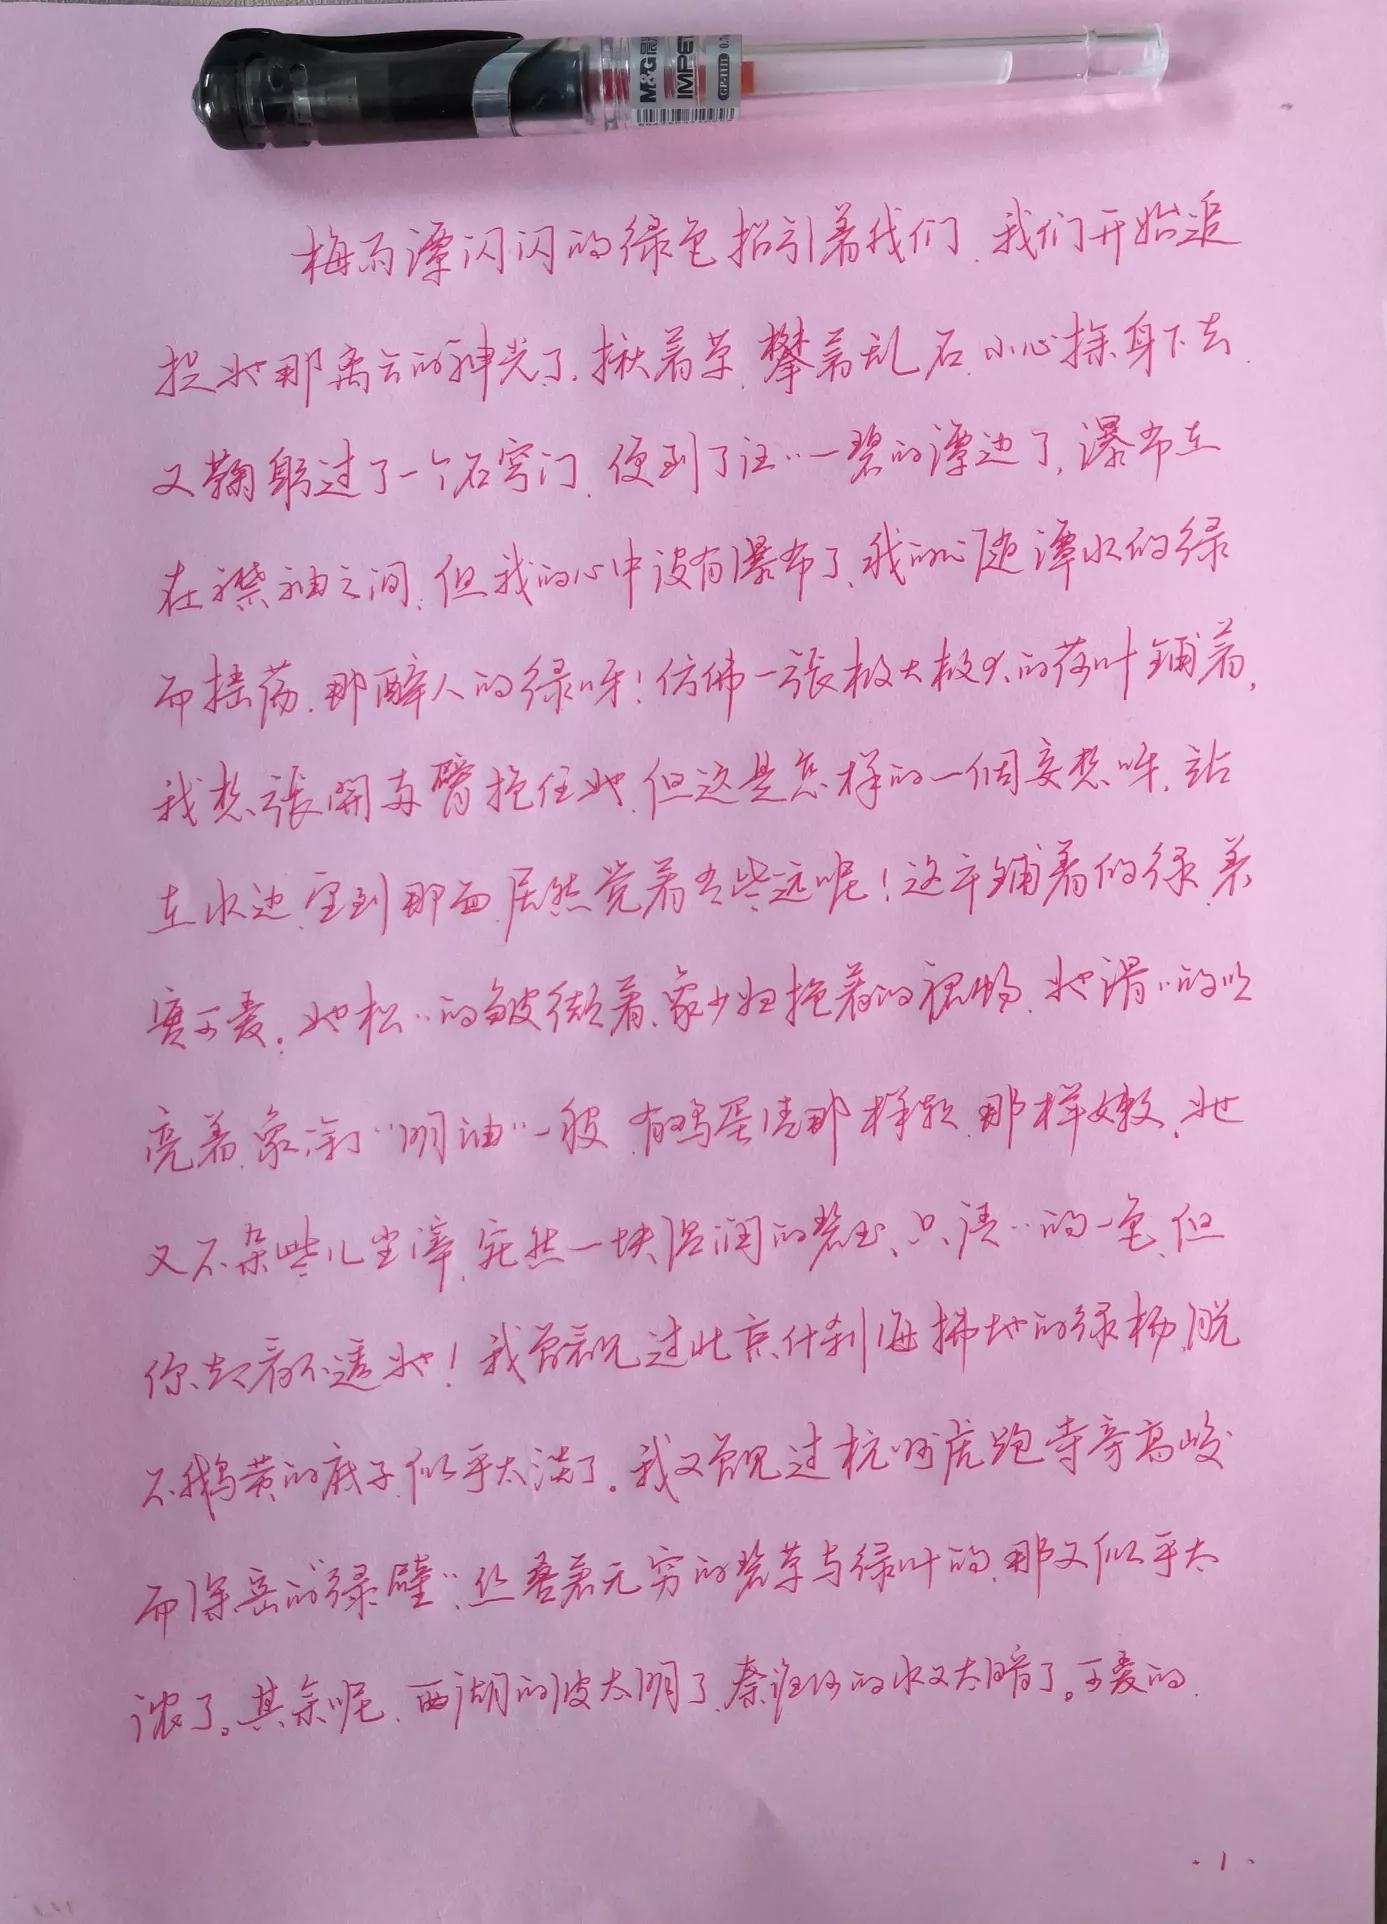 M&G 晨光 IMPET GP-1111 0.7
梅雨谭闪闪的绿色招引着我们、我们开始追
捉她那离合的神光了、揪着草、攀着乱石、小心探身下去、
又鞠躬过了一个石穹门、便到了汪‥一碧的谭边了，瀑布在
在襟袖之间、但我的心中没有瀑布了、我的心随谭水的绿
而摇荡、那醉人的绿呀！仿佛一張极大极大的荷叶铺着，
我想張開两臂抱住她、但这是怎样的一個妄想呀，站
在水边、望到那面、居然觉着有些远呢！这平铺着的绿、着
实可爱。她松‥的皱缬着、象少妇拖着的裙幅、她滑‥的
亮着、象涂了“明油”一般 有鸡蛋清那样软、那样嫩，她
又不杂些儿尘滓，宛然一块温润的碧玉、只清‥的一色、但
你却看不透她！我曾見过北京什刹海拂地的绿杨，脱
不鹅黄的底子、似乎太淡了。我又曾見过杭州虎跑寺旁高峻
而深的“绿壁”、丛叠着无穷的碧草与绿叶的、那又似乎太
浓了。其余呢、西湖的波太明了、秦淮河的水又太暗了。可爱的、
· 1 ·